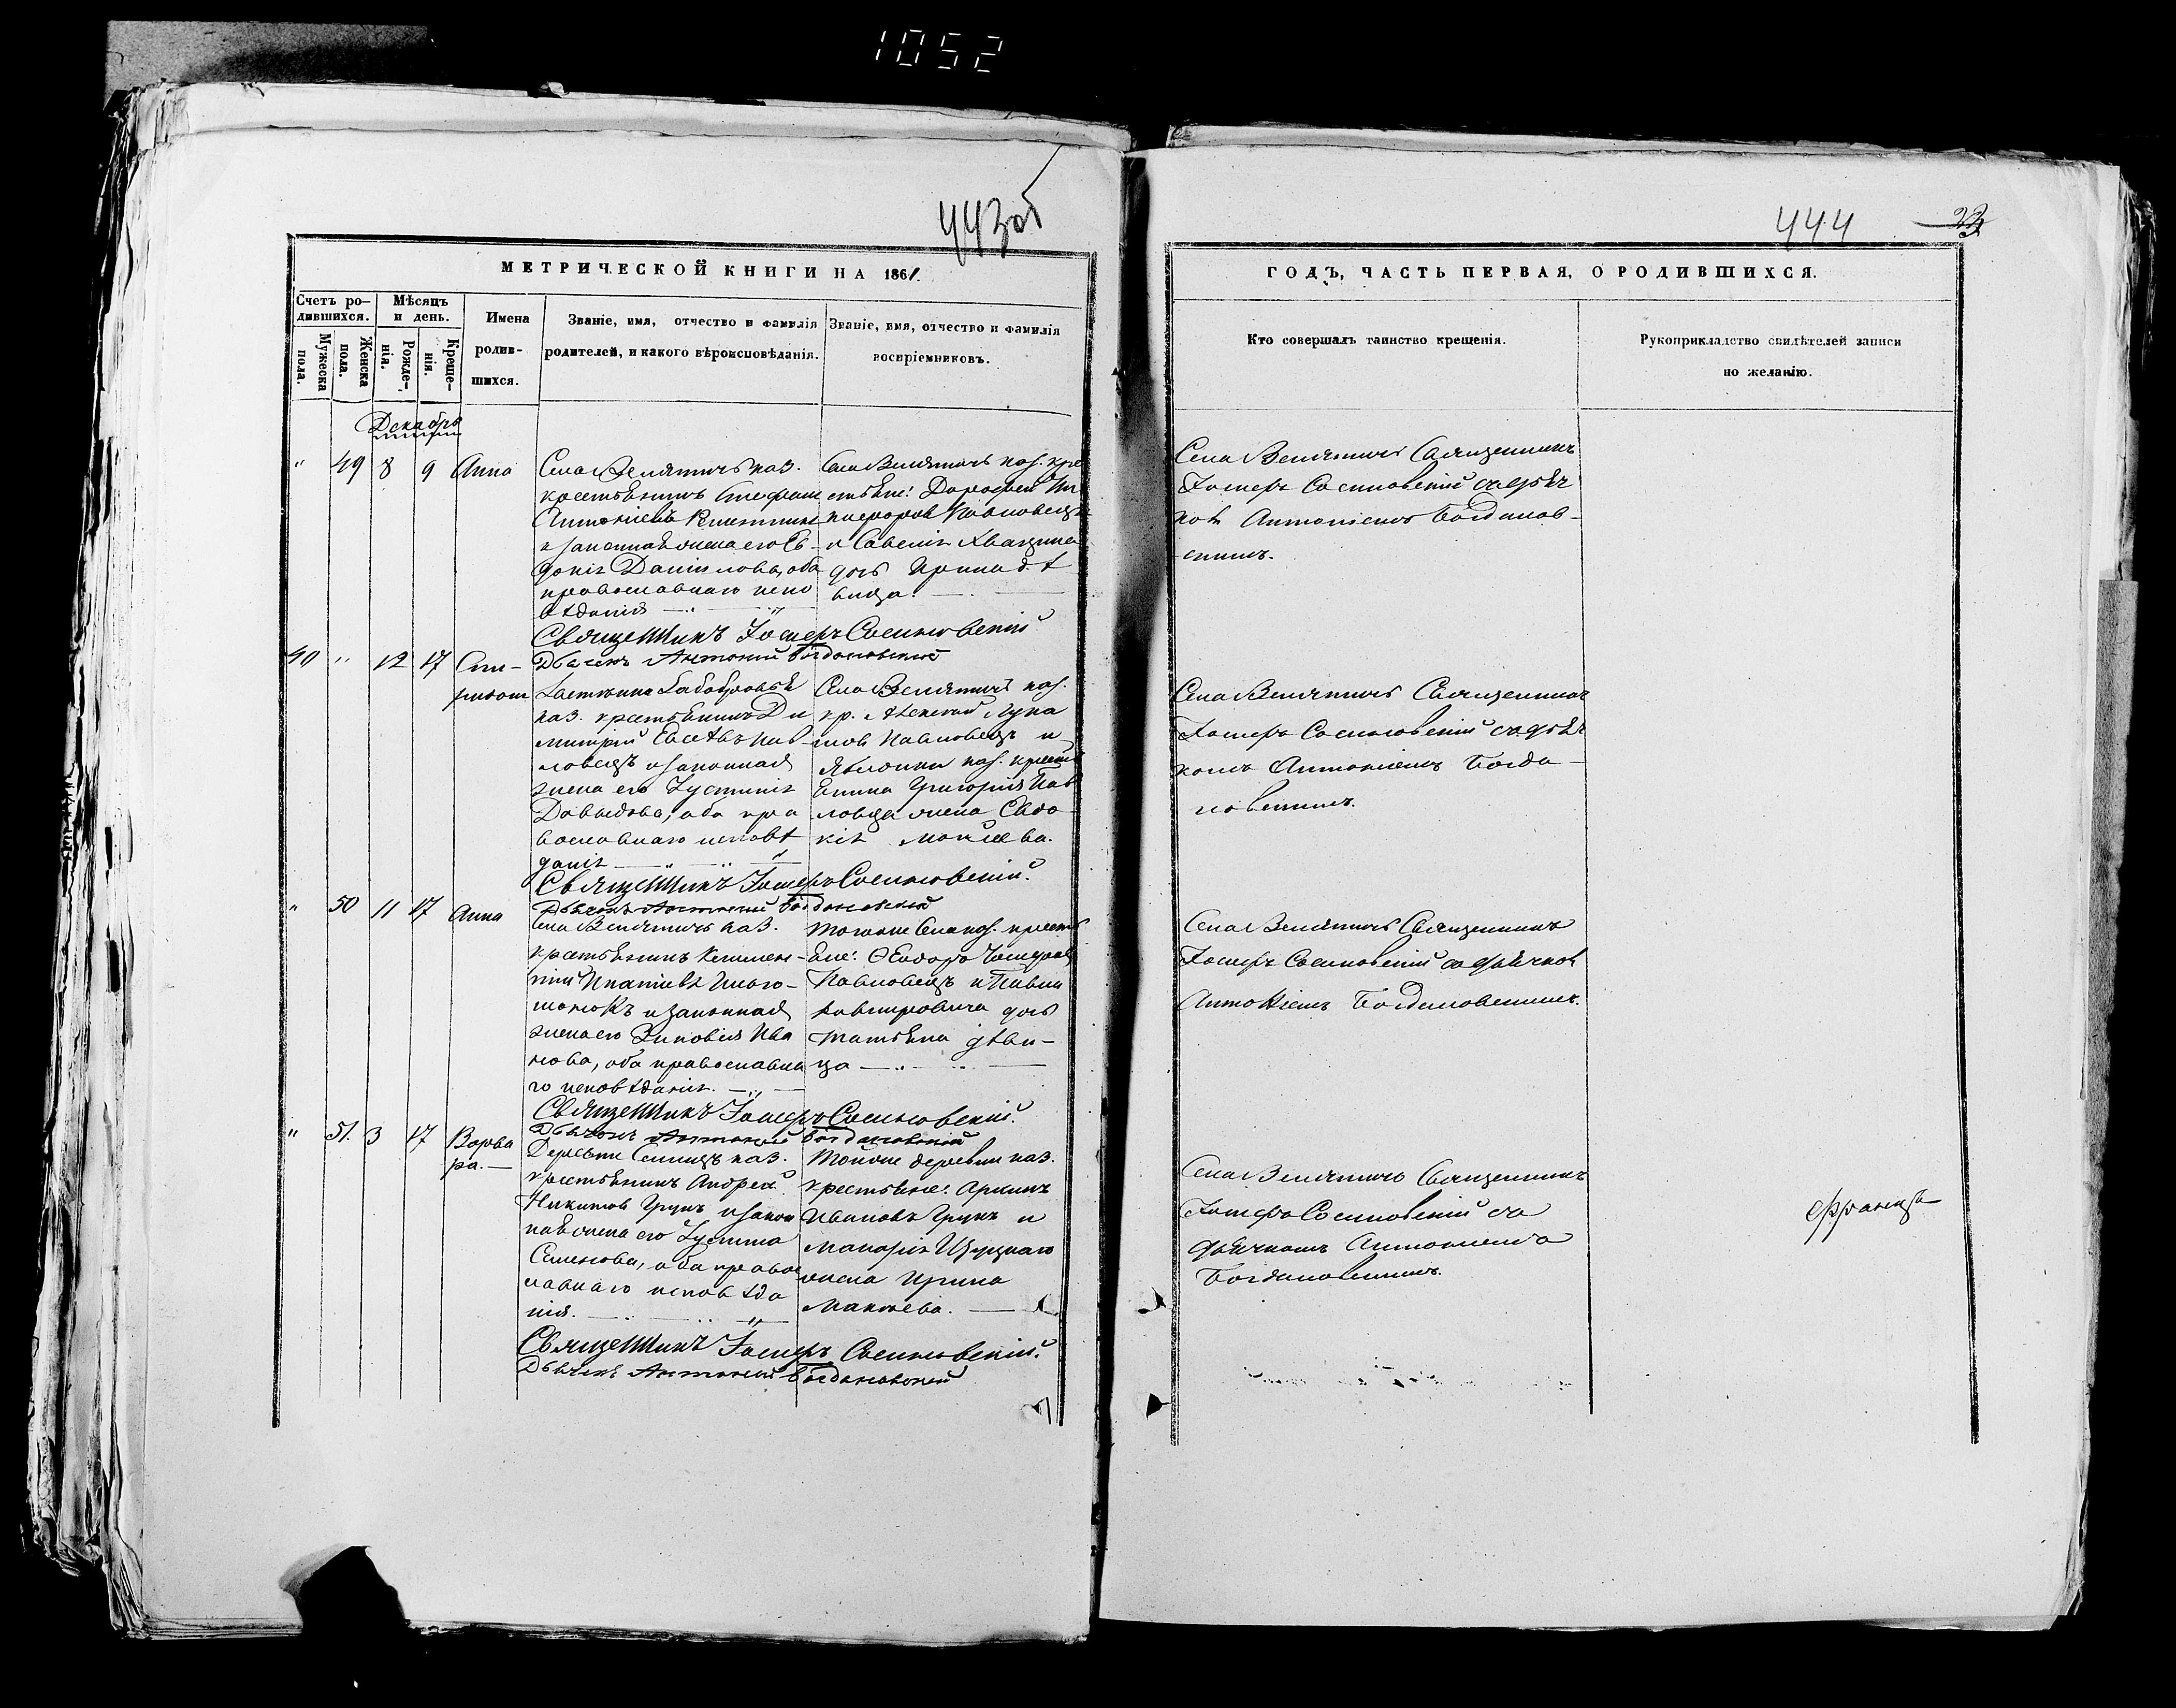 1052
443об
МЕТРИЧЕСКОЙ КНИГИ НА 1861.
Счетъ ро-
дившихся.
Мѣсяцъ
и день.
Имена
родив-
шихся.
Званіе, имя, отчество и фамилія
родителей, и какого вѣроисповѣданія.
Званіе, имя, отчество и фамилія
воспріемниковъ.
Мужеска
пола.
Женска
пола.
Рожде-
нія.
Креще-
нія.
Декабрь
" 49 8 9 Анна
Села Велятичъ каз.
крестьянинъ Стефанъ
Антоніевъ
и законная жена его Ев-
докія Данилова, оба
православнаго испо
вѣданія
Села Велятичъ каз. кре
стьяне: Дорофей Ни
кифоровъ Павловецъ
и Савелія
дочь Ирина дѣ
вица.
Священникъ Іосифъ Сосиновскій
Дьячекъ Антоній Богдановскій
40 " 12 17 Спи-
ридонъ
каз. крестьянинъ Ди
митрій Евсѣевъ Пав
ловецъ и законная
жена его Іустинія
Давыдова, оба пра
вославнаго исповѣ
данія
Села Велятичъ каз.
кр. Алексѣй Лука
шовъ Павловецъ и
каз. крестья
нина Григорія Пав
ловца жена Евдо
кія Моисеева.
Священникъ Іосифъ Сосиновскій.
Дьячекъ Антоній Богдановскій
" 50 11 17 Анна
Села Велятичъ каз.
крестьянинъ Климен-
тій Ипатіевъ
и законная
жена его Зиновія Ива
нова, оба православна
го исповѣданія.
Тогоже села каз. кресть
яне: Ѳеодоръ Іосифовъ
Павловецъ и Павла
дочь
Татьяна дѣви-
ца
Священникъ Іосифъ Сосиновскій.
Дьячекъ Антоній Богдановскій
" 51. 3 17 Варва
ра.
Деревни каз.
крестьянинъ Андрей
Никитовъ Грунъ и закон
ная жена его Іустина
Семенова, оба правос
лавнаго исповѣда
нія.
Тойже деревни каз.
крестьяне: Архипъ
Ивановъ Грунъ и
Макарія
жена Ирина
Матвѣева.
Священникъ Іосифъ Сосиновскій.
Дьячекъ Антоній Богдановскій
444
ГОДЪ, ЧАСТЬ ПЕРВАЯ, О РОДИВШИХСЯ.
Кто совершалъ таинство крещенія.
Рукоприкладство свидѣтелей записи
по желанію.
Села Велятичъ Священникъ
Іосифъ Сосиновскій съ дьяч
комъ Антоніемъ Богданов-
скимъ.
Села Велятичъ Священникъ
Іосифъ Сосиновскій съ дьяч
комъ Антоніемъ Богда-
новскимъ.
Села Велятичъ Священникъ
Іосифъ Сосиновскій съ дьячком
Антоніемъ Богдановскимъ.
Села Велятичъ Священникъ
Іосифъ Сосиновскій съ
дьячкомъ Антоніемъ
Богдановскимъ.